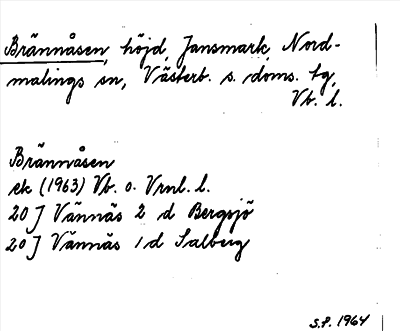 Brännåsen, höjd, Jansmark, Nord-
malings sn, Västerb. s. doms. tg,
Vb. l.
Brännåsen
ek (1963) Vb. o. Vrnl. l.
20 J Vännäs 2 d Bergsjö
20 J Vännäs 1 d Salberg
S.P. 1964